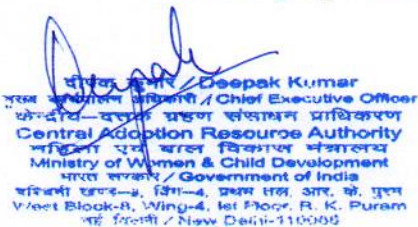 Deepak
दीपक कुमार / Deepak Kumar
मुख्य कार्यपालन अधिकारी / Chief Executive Officer
केन्द्रीय-दत्तक ग्रहण संसाधन प्राधिकरण
Central Adoption Resource Authority
महिला एवं बाल विकास मंत्रालय
Ministry of Women & Child Development
भारत सरकार / Government of India
पश्चिमी खण्ड-8, विंग-4, प्रथम तल, आर. के. पुरम
West Block-8, Wing-4, Ist Floor, R. K. Puram
नई दिल्ली / New Delhi-110066